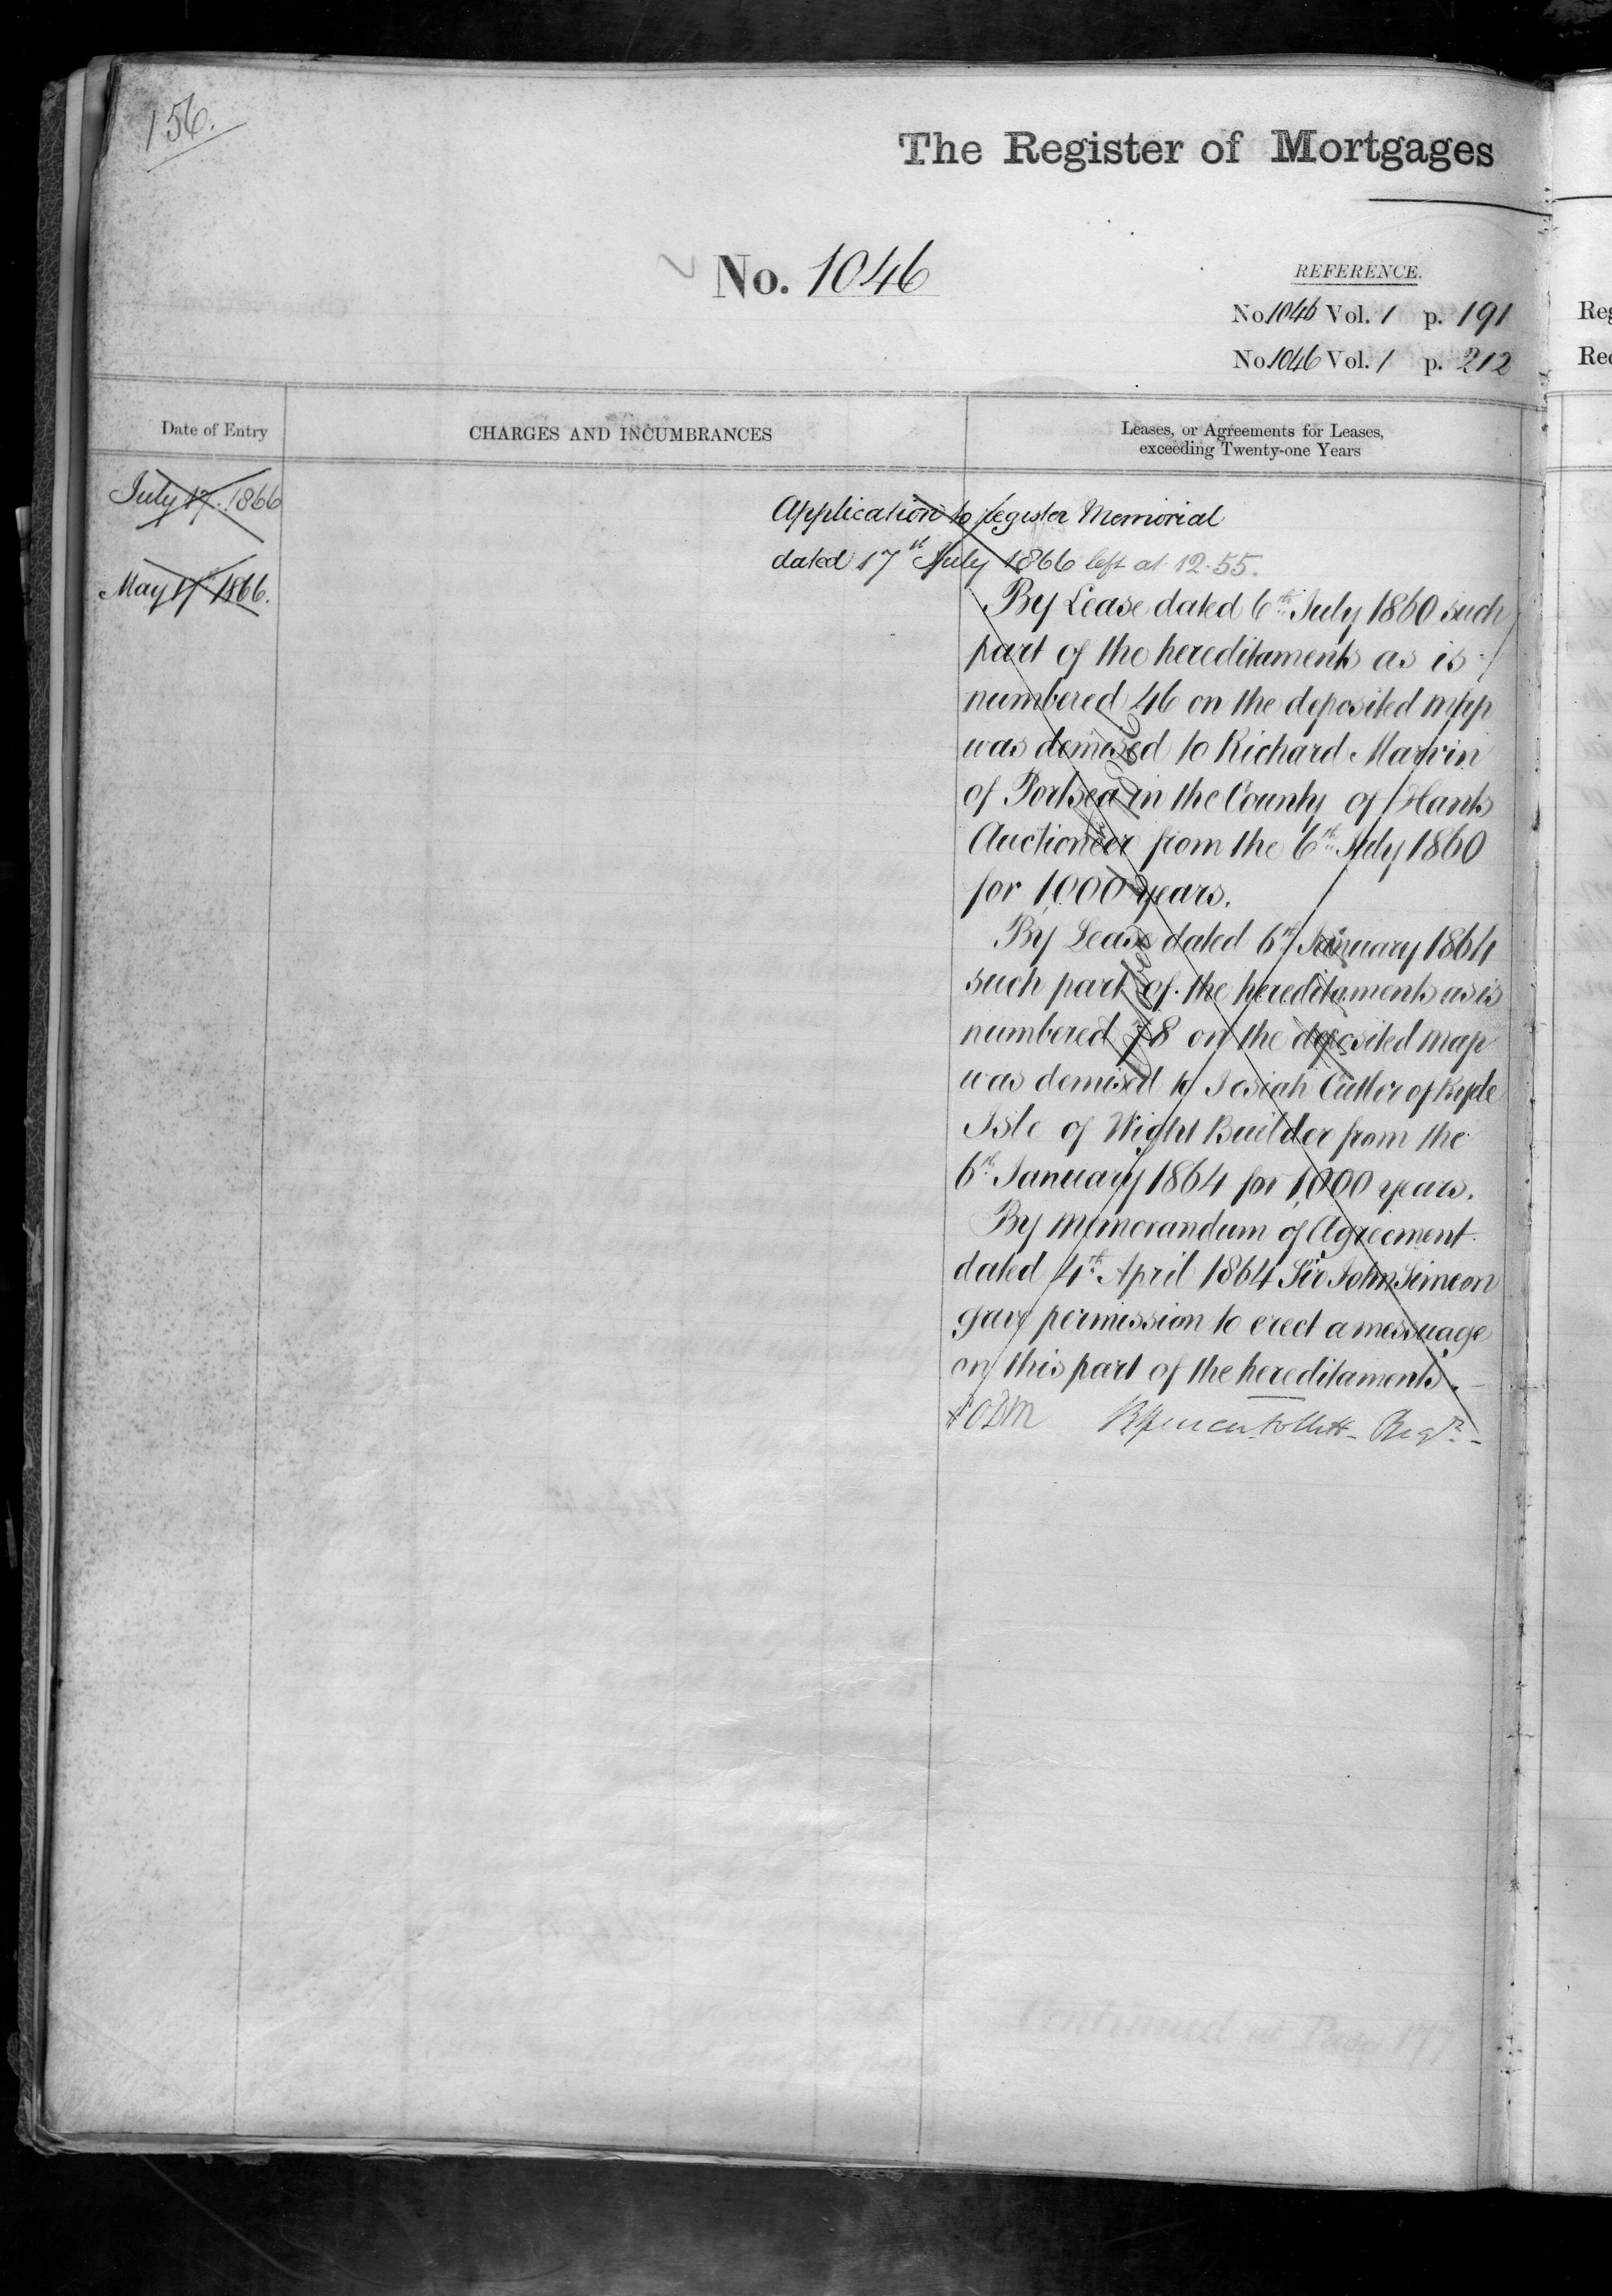 156.
The Register of Mortgages
No. 1046
REFERENCE.
No 1046 Vol. 1 p. 191
No 1046 Vol. 1 p. 212
Reg
Rec
Date of Entry
CHARGES AND INCUMBRANCES
Leases, or Agreements for Leases,
exceeding Twenty-one Years
July 17. 1866
Application to register Memorial
dated 17th July 1866 left at 12.55.
May 17 1866.
By Lease dated 6th July 1860 such
part of the hereditaments as is
numbered 46 on the deposited map
was demised to Richard Marvin
of Portsea in the County of Hants
Auctioneer from the 6th July 1860
for 1,000 years.
By Lease dated 6th January 1864
such part of the hereditaments as is
numbered 78 on the deposited map
was demised to Josiah Cutler of Ryde
Isle of Wight Builder from the
6th January 1864 for 1,000 years.
By memorandum of Agreement
dated 4th April 1864 Sir John Simeon
gave permission to erect a messuage
on this part of the hereditaments.
Follett Regr.
Continued at Page